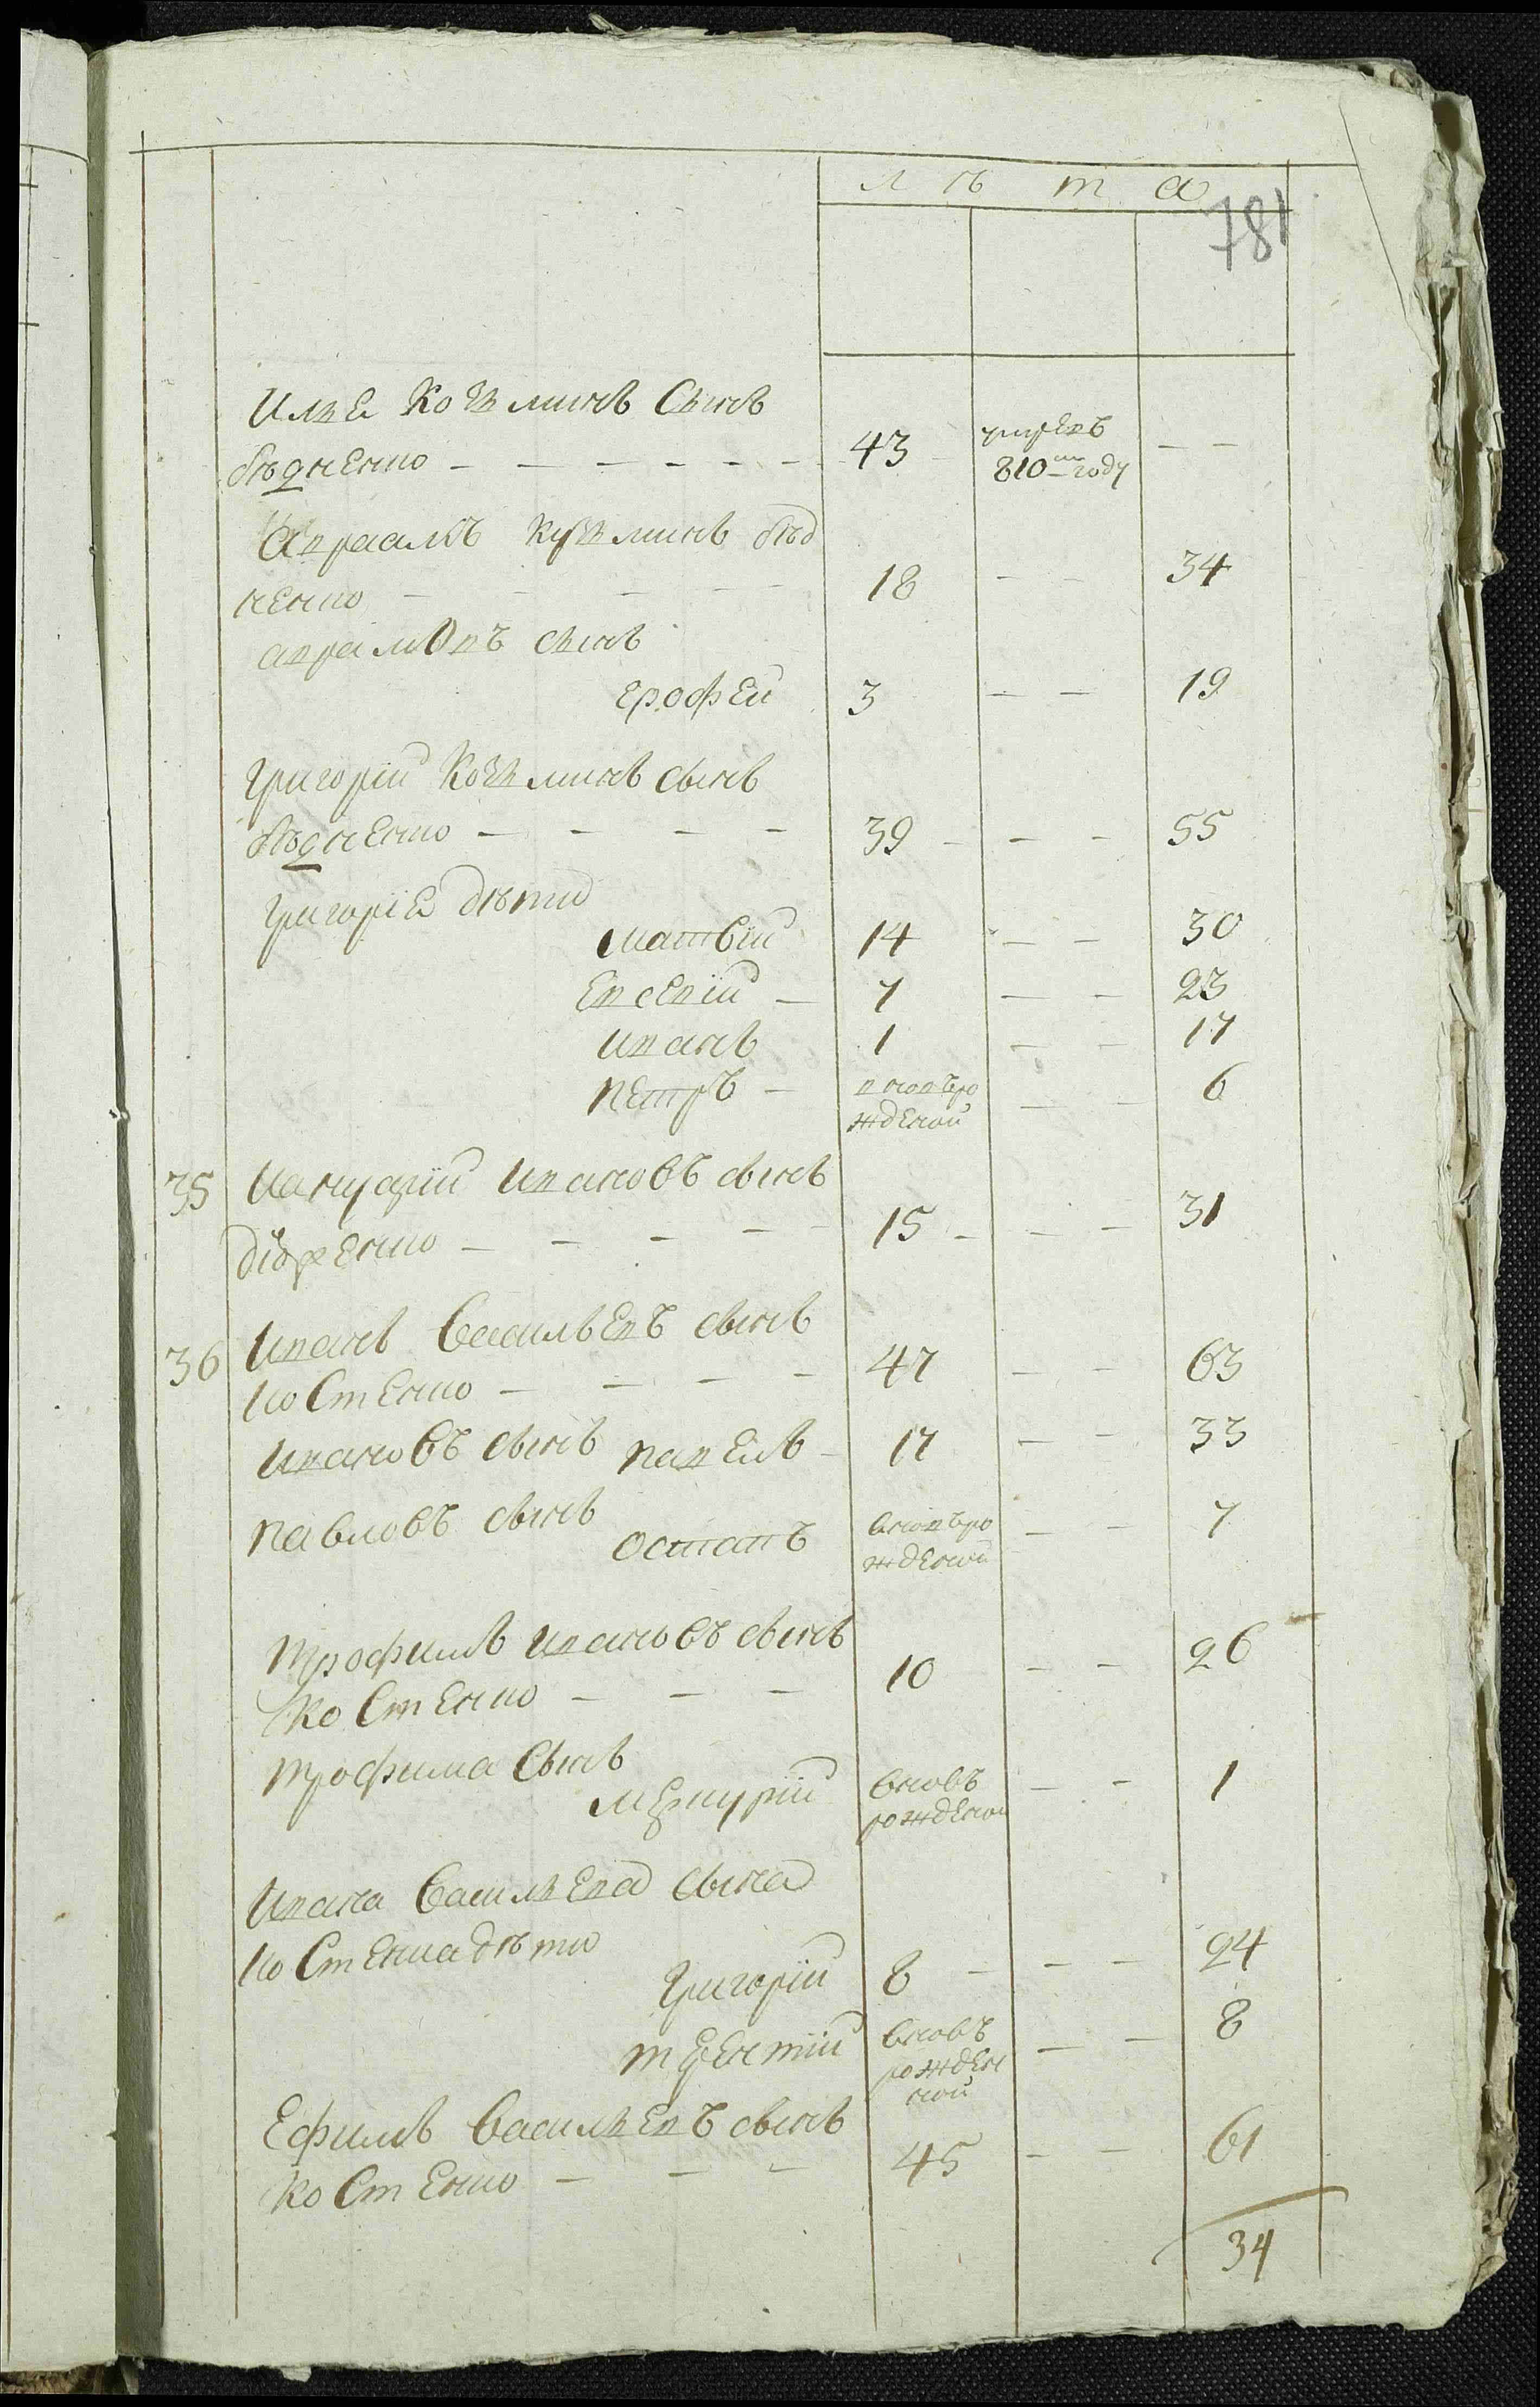 лѣта
781
Илье Козминъ Сынъ
бѣдненко 43 умревъ
810м году
Авраамъ Кузминъ бѣд
ненко 18 34
аврамовъ сынъ
ерофеи 3 19
Григорїи Козминъ сынъ
бѣдненко 39 55
Григорїе дѣти
матвїи 14 30
Евсевїи 7 23
Иванъ 1 17
петръ вновъро 6
жденои
35 Иануарїи Ивановъ сынъ
15 31
36 Иванъ Васильевъ сынъ
ко Стенко 47 63
Ивановъ сынъ павелъ 17 33
павловъ сынъ остапъ вновъро 7
жденои
Трофимъ ивановъ сынъ
ко Стенко 10 26
трофима Сынъ
меркурїи вновъ 1
рожденои
Ивана Васильева сына
ко Стенка дѣти
Григорїи 8 24
терентїи вновъ 8
рожден
нои
Ефимъ Васильевъ сынъ
ко Стенко 45 61
34